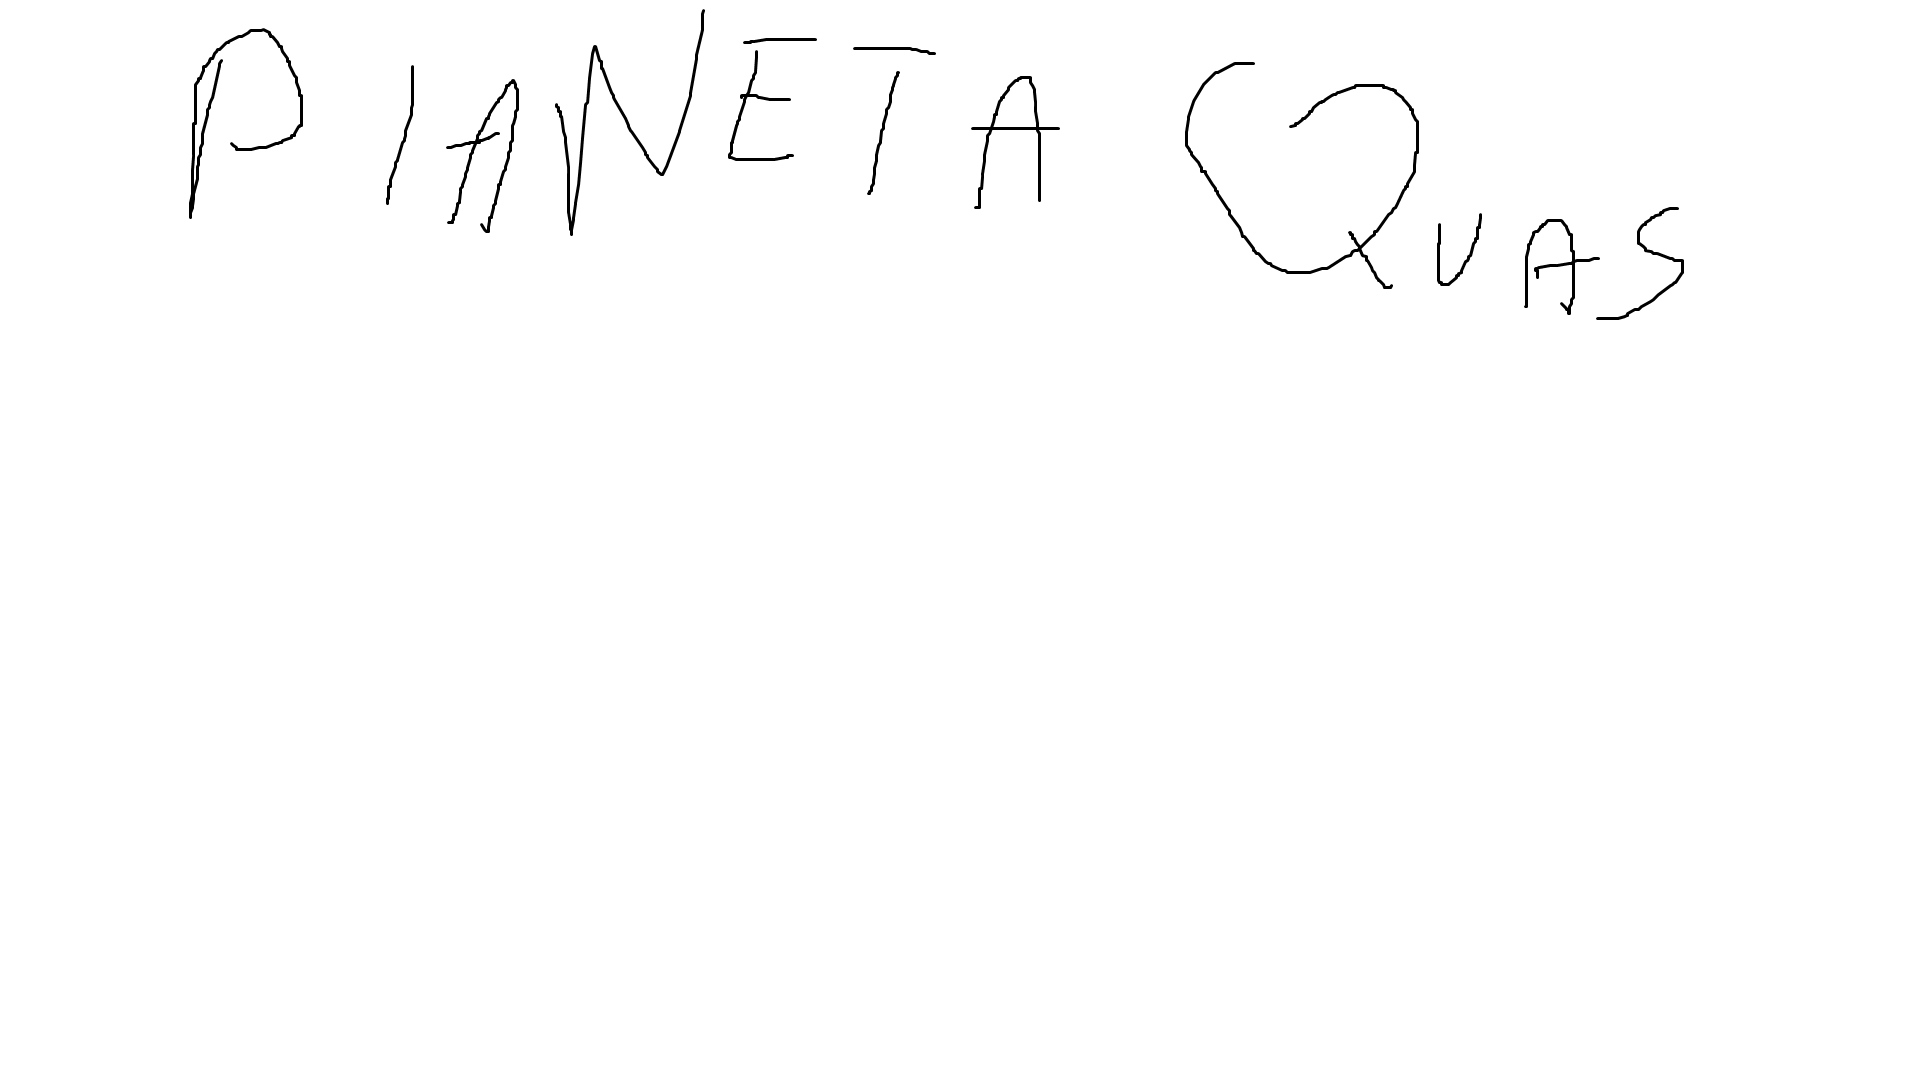 PIANETA QUAS